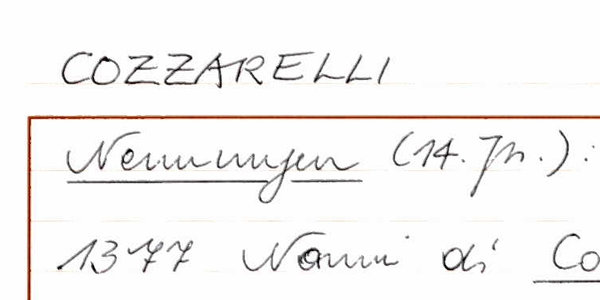 COZZARELLI
Nennungen (14. Jh.):
1377 Nanni di Co